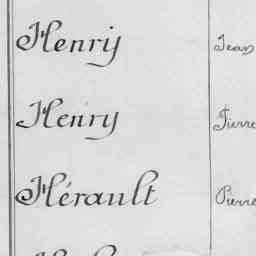 Henry Jean
Henry Pierre
Hérault Pierre